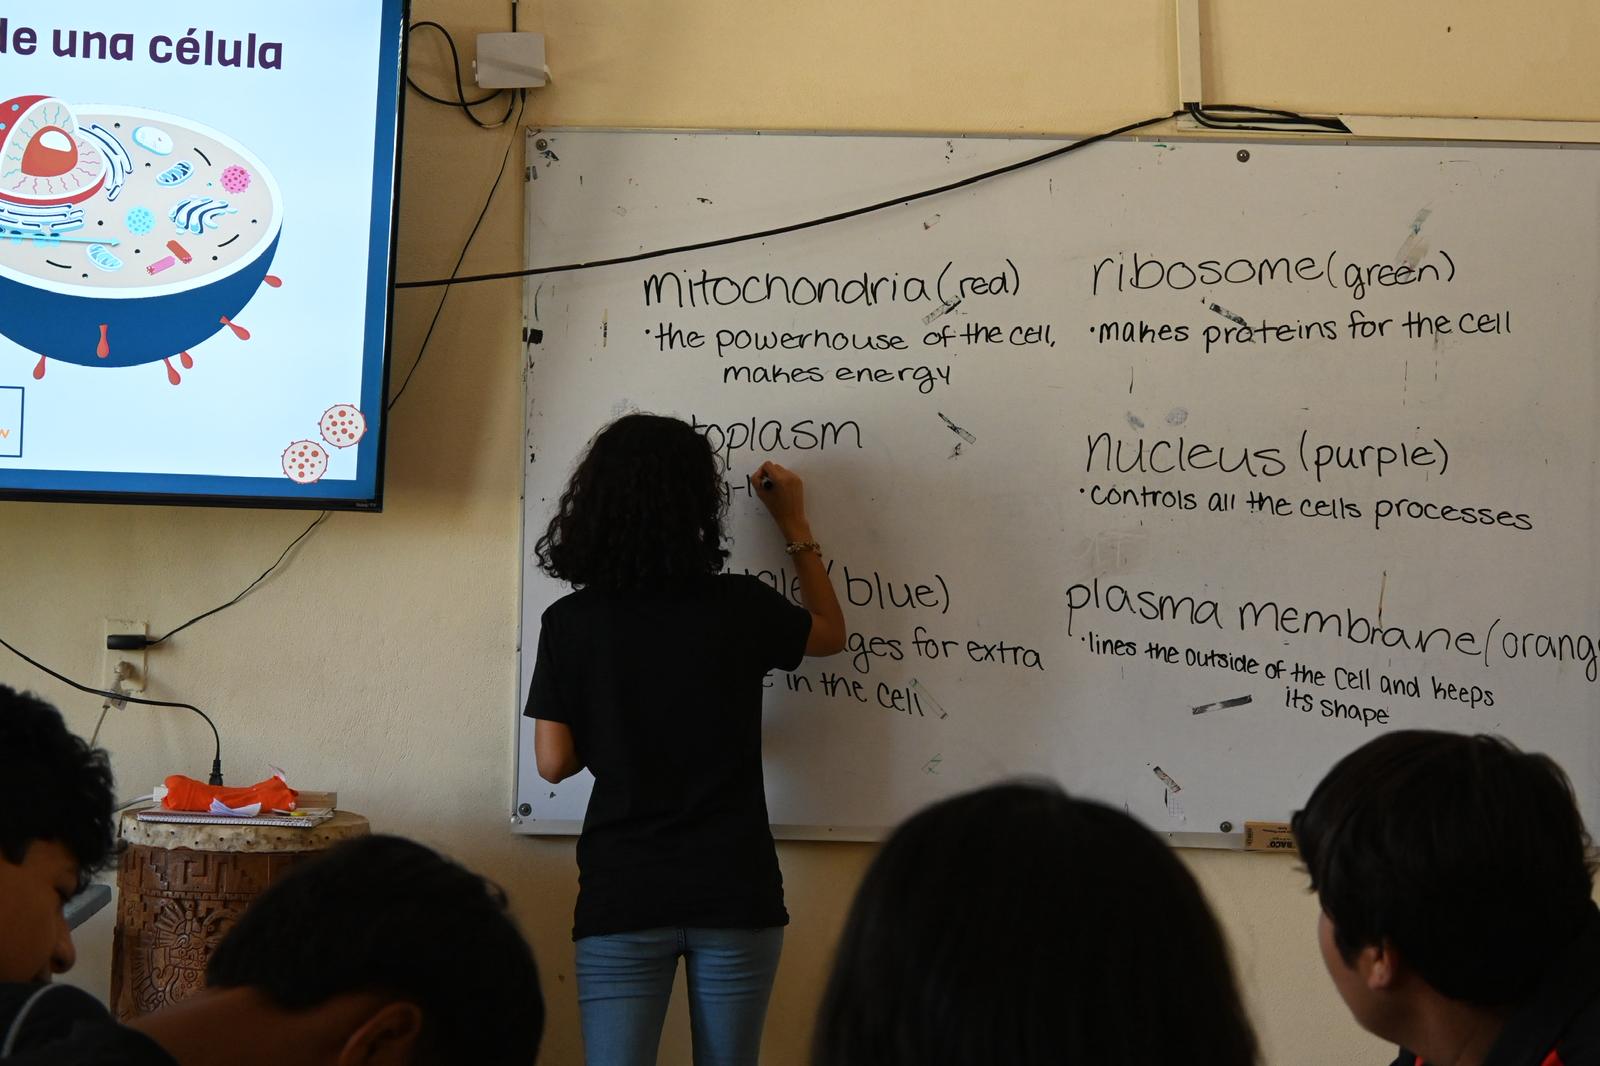 de una célula
mitochondria (red)
· the powerhouse of the cell,
makes energy
ribosome (green)
· makes proteins for the cell
nucleus (purple)
· controls all the cells processes
(blue)
for extra
in the cell
plasma membrane (orang
· lines the outside of the cell and keeps
its shape